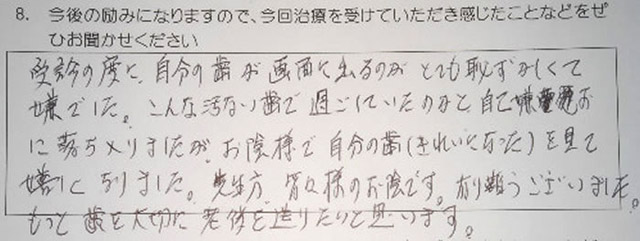 8. 今後の励みになりますので、今回治療を受けていただき感じたことなどをぜ
ひお聞かせください
受診の度に、自分の歯が画面に出るのがとても恥ずかしくて
嫌でした。こんな汚ない歯で過ごしていたのかと自己嫌悪お
に落ち入りましたが、お陰様で自分の歯(きれいになった)を見て
嬉しくなりました。先生方、皆々様のお陰です。有り難うございました。
もっと歯を大切に老後を送りたいと思います。